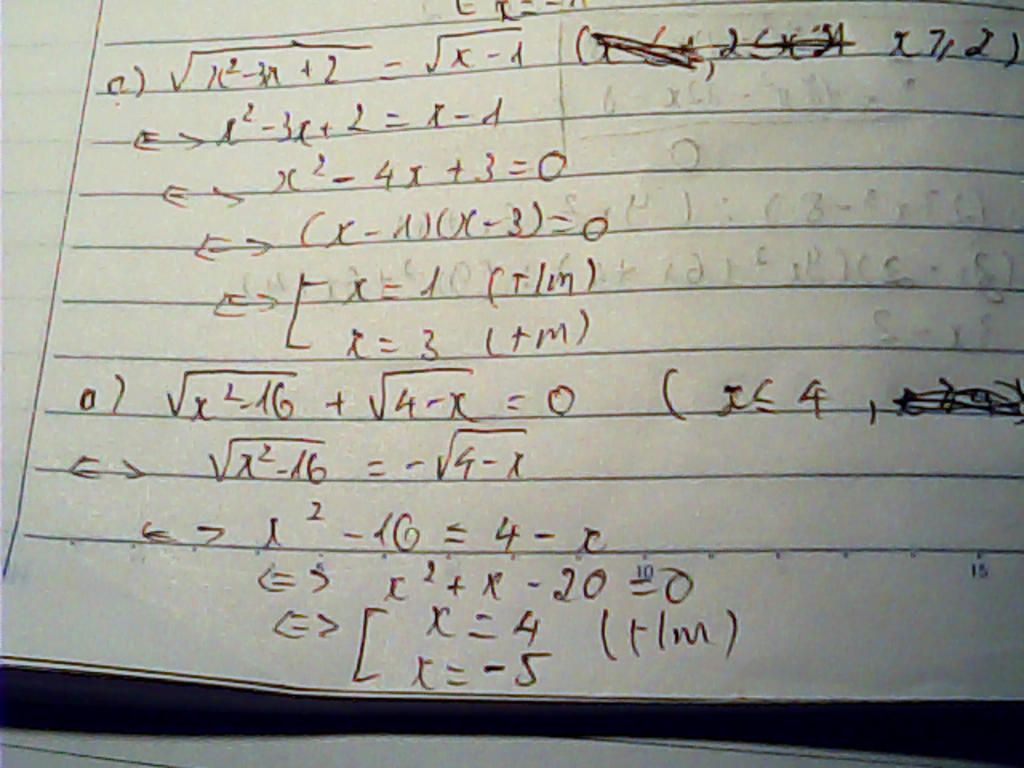 c) √(x²-3x+2) = √(x-1) ( x ≥ 2 )
<=> x² - 3x + 2 = x - 1
<=> x² - 4x + 3 = 0
<=> (x - 1)(x - 3) = 0
<=> [ x = 1 (t/m)
x = 3 (t/m)
√(x²-16) + √(4-x) = 0 ( x ≤ 4 ,
<=> √(x²-16) = -√(4-x)
<=> x² - 16 = 4 - x
10 15
<=> x² + x - 20 = 0
<=> [ x = 4 (t/m)
x = -5